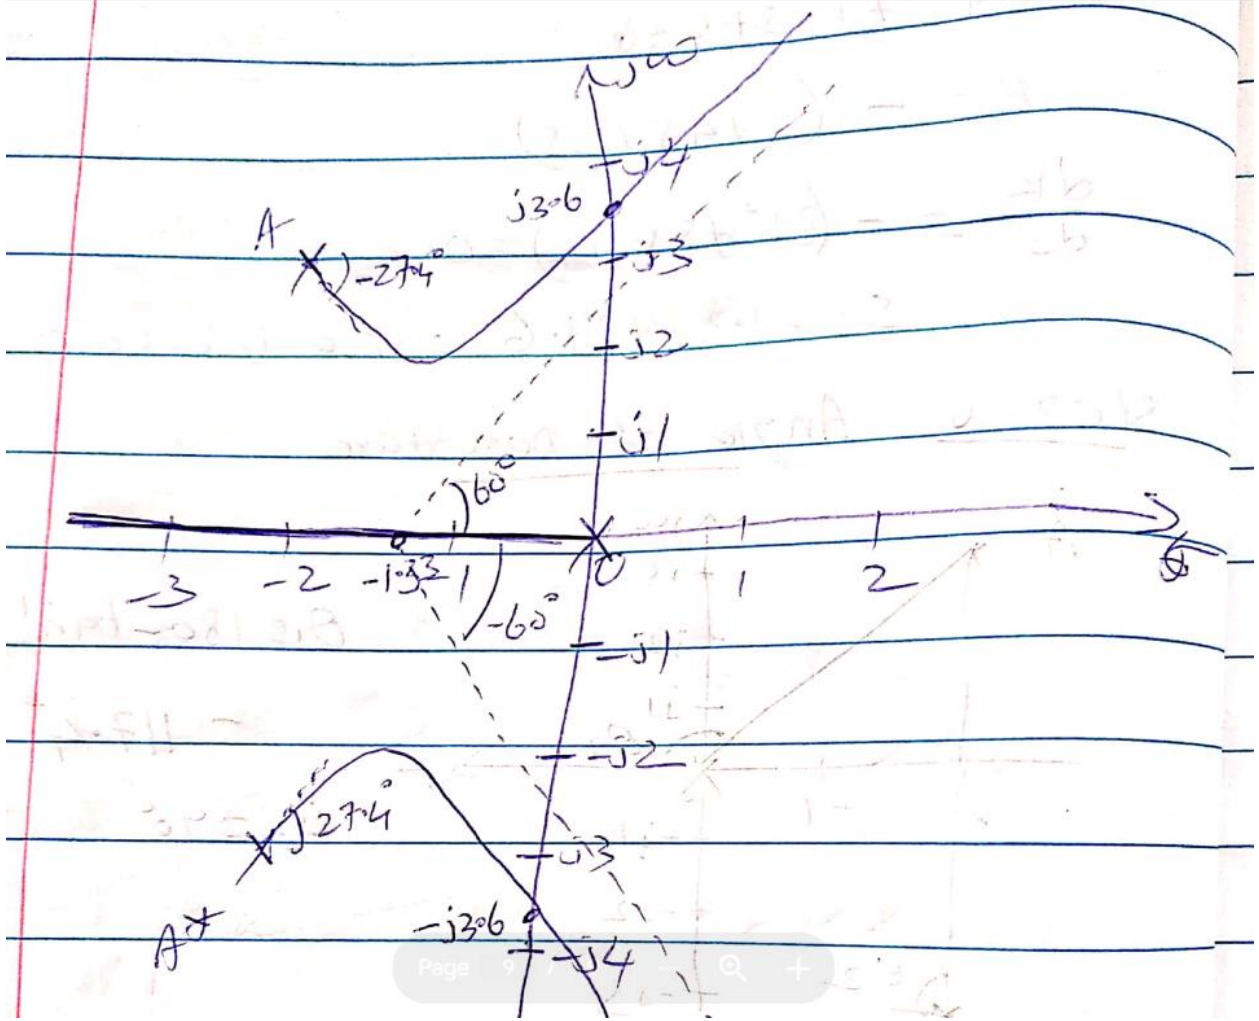 jω
j4
j3.6
A
-27.4°
j3
j2
j1
60°
-3 -2 -1.33 -1 0 1 2 σ
-60°
-j1
-j2
27.4°
-j3
-j3.6
A*
-j4
Page 9 /